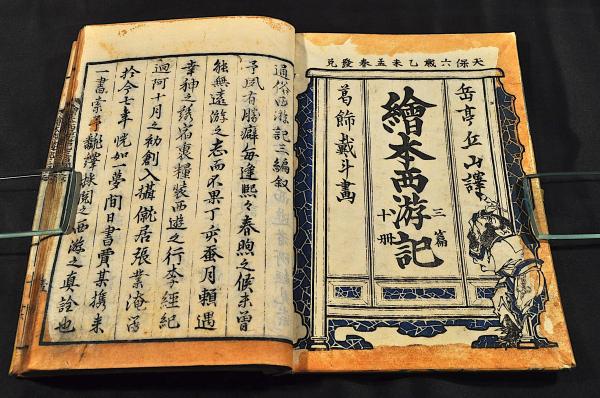 天保六歳乙未孟春發兌
岳亭丘山譯
繪本西游記
三篇
十冊
葛飾戴斗畫
通俗西游記三編叙
予夙有勝癖每逢熙々春煦之候未曾
能無遠游之志而不果丁亥蚕月頼遇
幸神之誘帛裹糧装西遊之行李經紀
迴阿十月之初創入攝僦居張業淹留
於今七年恍如一夢間日書賈某携来
一書索予翻譯閲之西游之真詮也